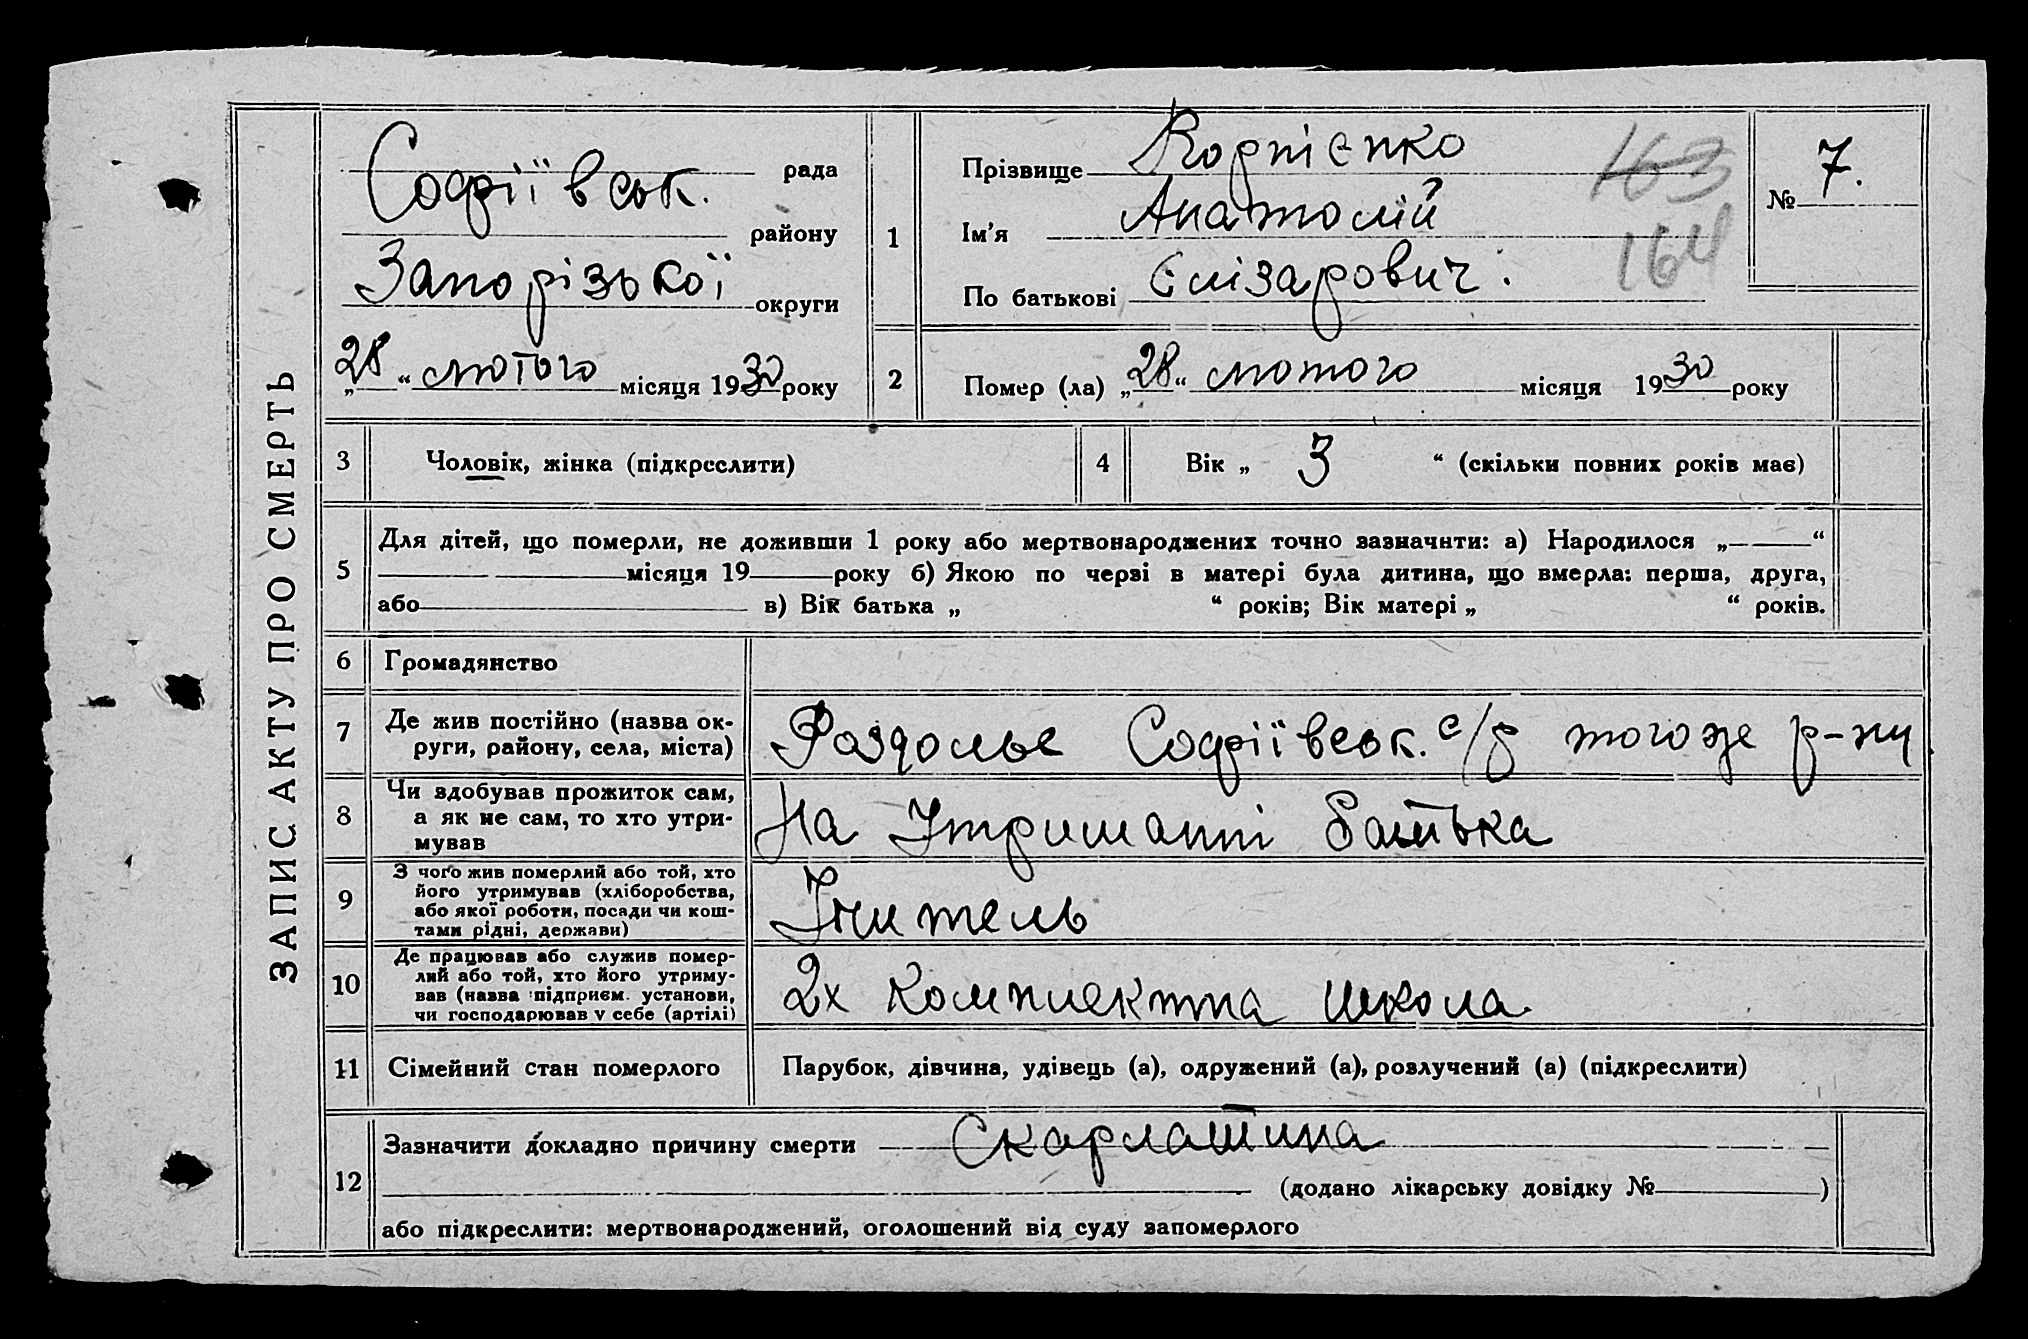 ЗАПИС АКТУ ПРО СМЕРТЬ
Софіївськ. рада
району
Запорізької округи
„28“ лютого місяця 1930 року
1
Прізвище Корнієнко
Ім’я Анатолій
По батькові Єлізарович.
163
164
№ 7.
2 Помер (ла) „28“ лютого місяця 1930 року
3 Чоловік, жінка (підкреслити)
4 Вік „ 3 “ (скільки повних років має)
5
Для дітей, що померли, не доживши 1 року або мертвонароджених точно зазначити: а) Народилося „ “
місяця 19 року б) Якою по черзі в матері була дитина, що вмерла: перша, друга,
або в) Вік батька „ “ років; Вік матері „ “ років.
6 Громадянство
7 Де жив постійно (назва ок-
руги, району, села, міста)
Раздолье Софіївськ. с/р тогоже р-ну
8 Чи здобував прожиток сам,
а як не сам, то хто утри-
мував
На Утриманні батька
9 З чого жив померлий або той, хто
його утримував (хліборобства,
або якої роботи, посади чи кош-
тами рідні, держави)
Учитель
10 Де працював або служив помер-
лий або той, хто його утриму-
вав (назва підприєм. установи,
чи господарював у себе (артілі)
2х комплектна школа
11 Сімейний стан померлого
Парубок, дівчина, удівець (а), одружений (а), розлучений (а) (підкреслити)
12
Зазначити докладно причину смерти Скарлатина
(додано лікарську довідку № )
або підкреслити: мертвонароджений, оголошений від суду запомерлого